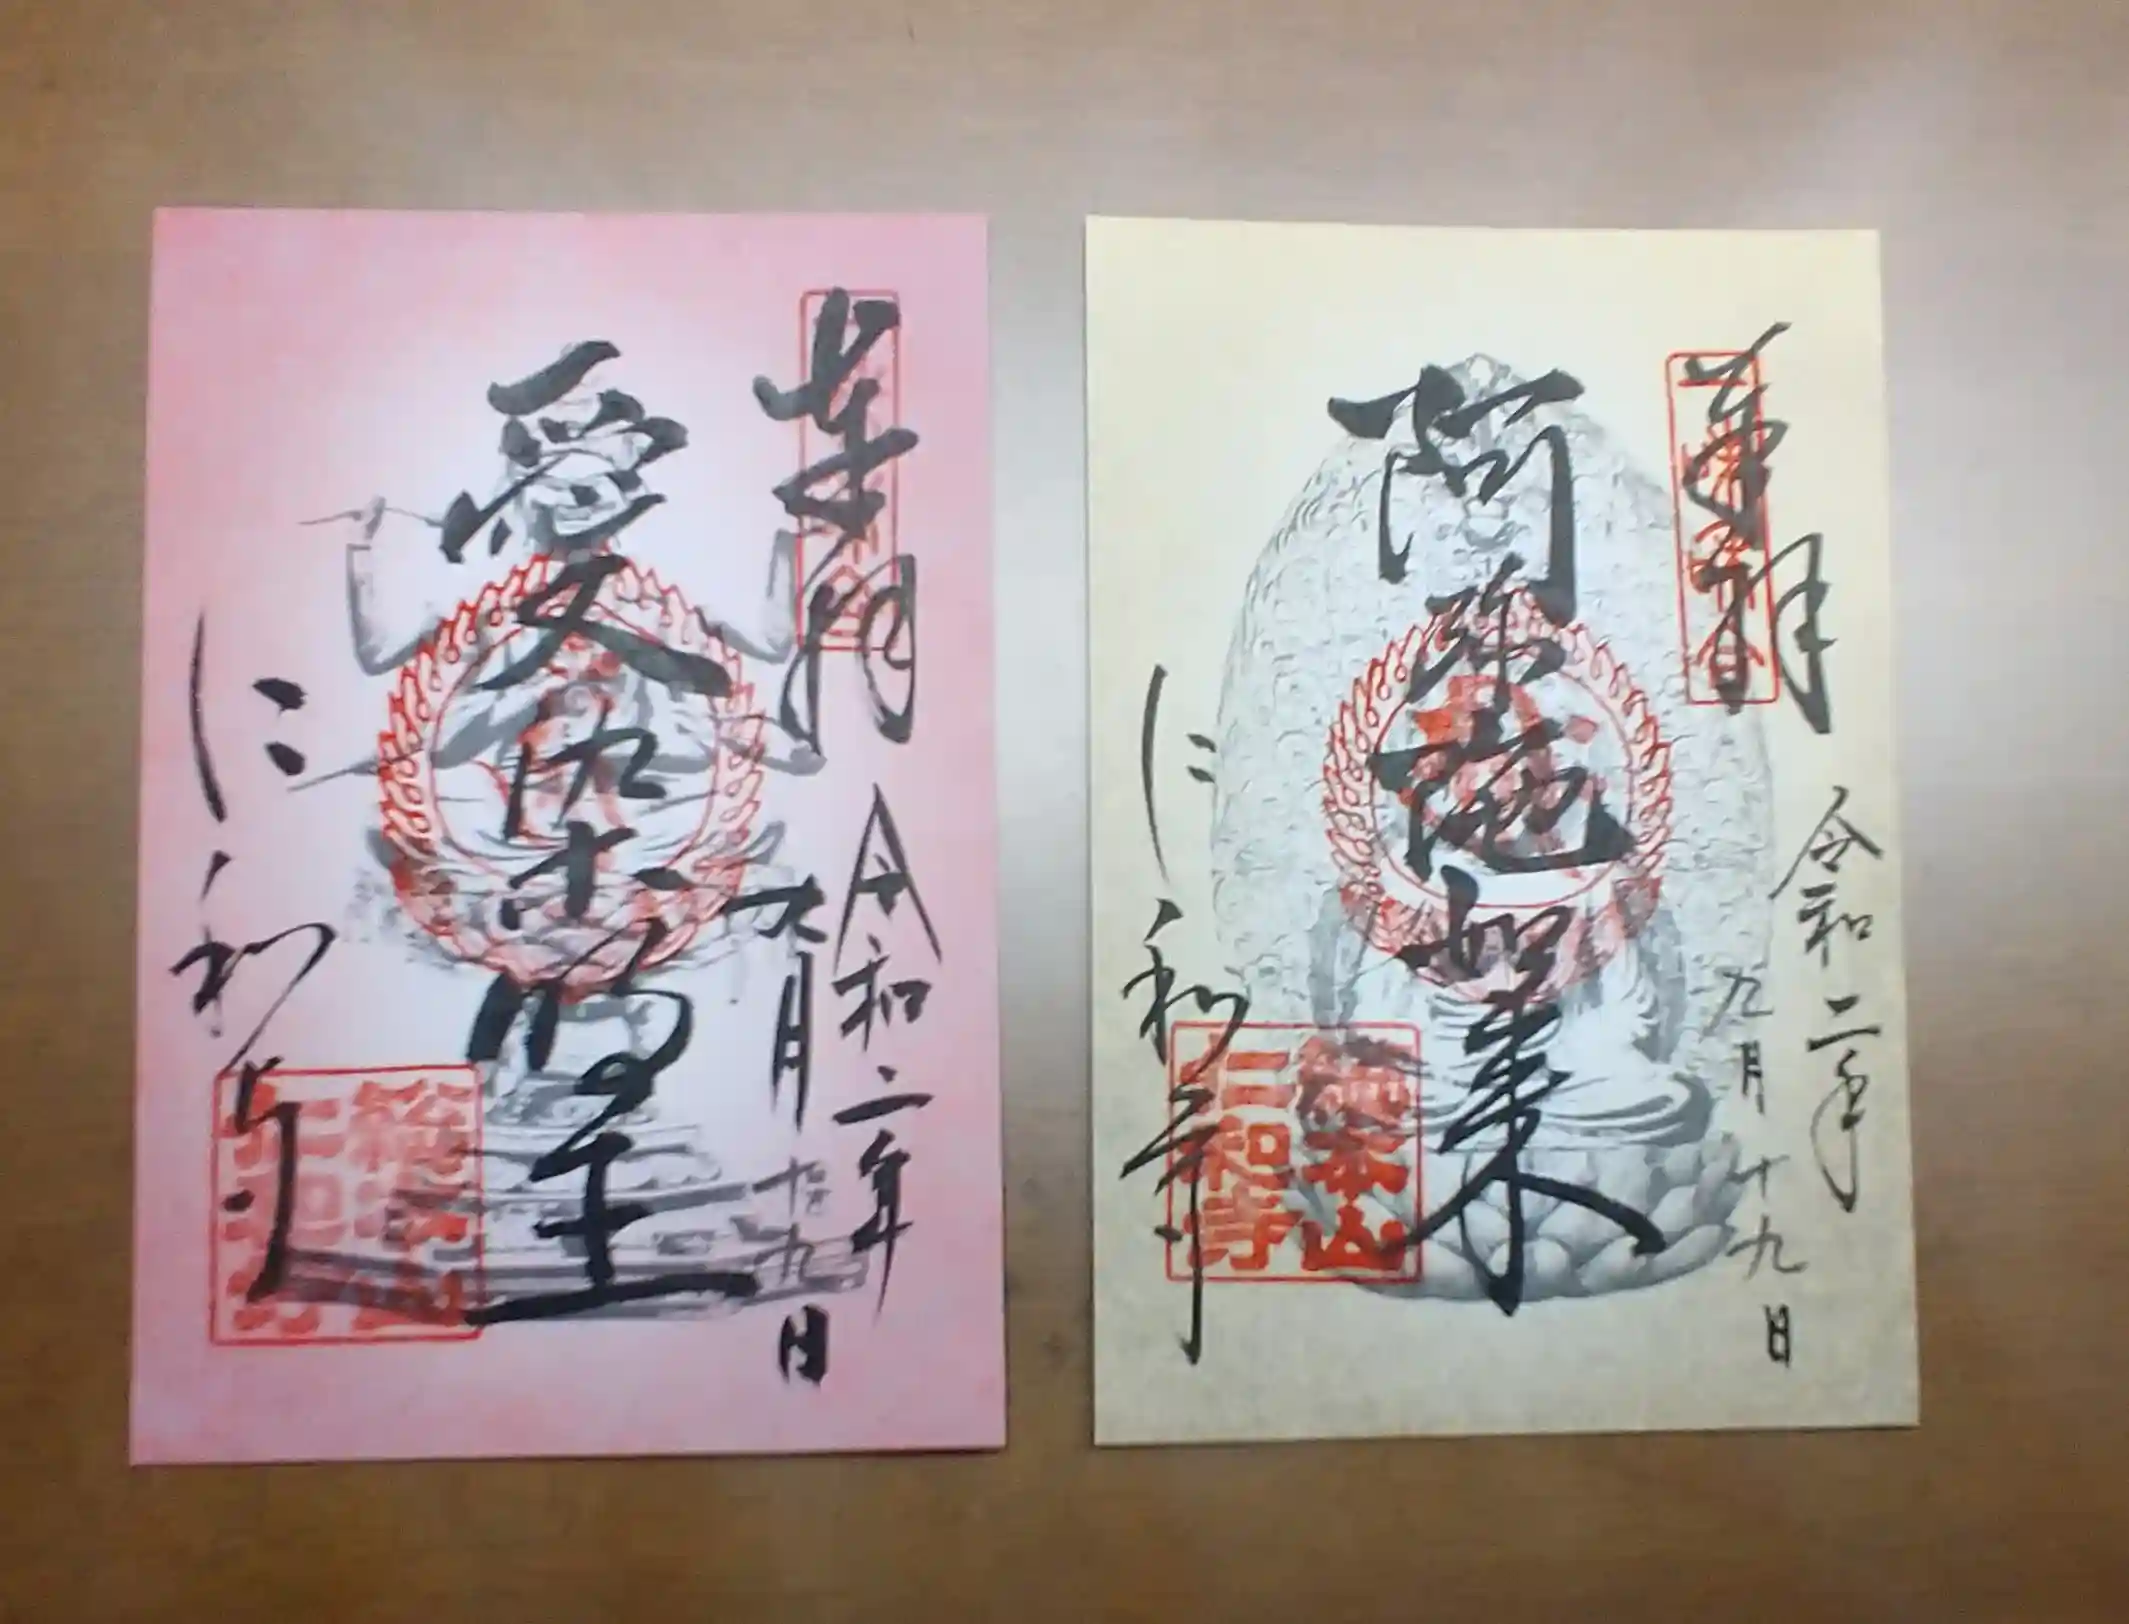 奉拝
令和二年
九月十九日
愛染明王
仁和寺
總本山
仁和寺
奉拝
令和二年
九月十九日
阿弥陀如来
仁和寺
總本山
仁和寺